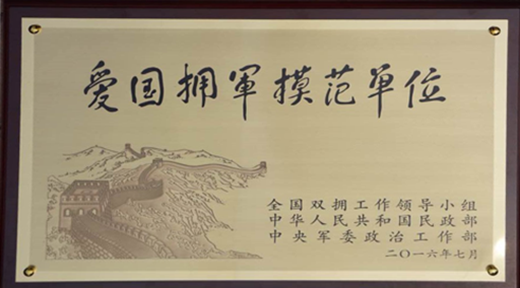 爱国拥軍模范单位
全国双拥工作领导小组
中华人民共和国民政部
中央军委政治工作部
二〇一六年七月